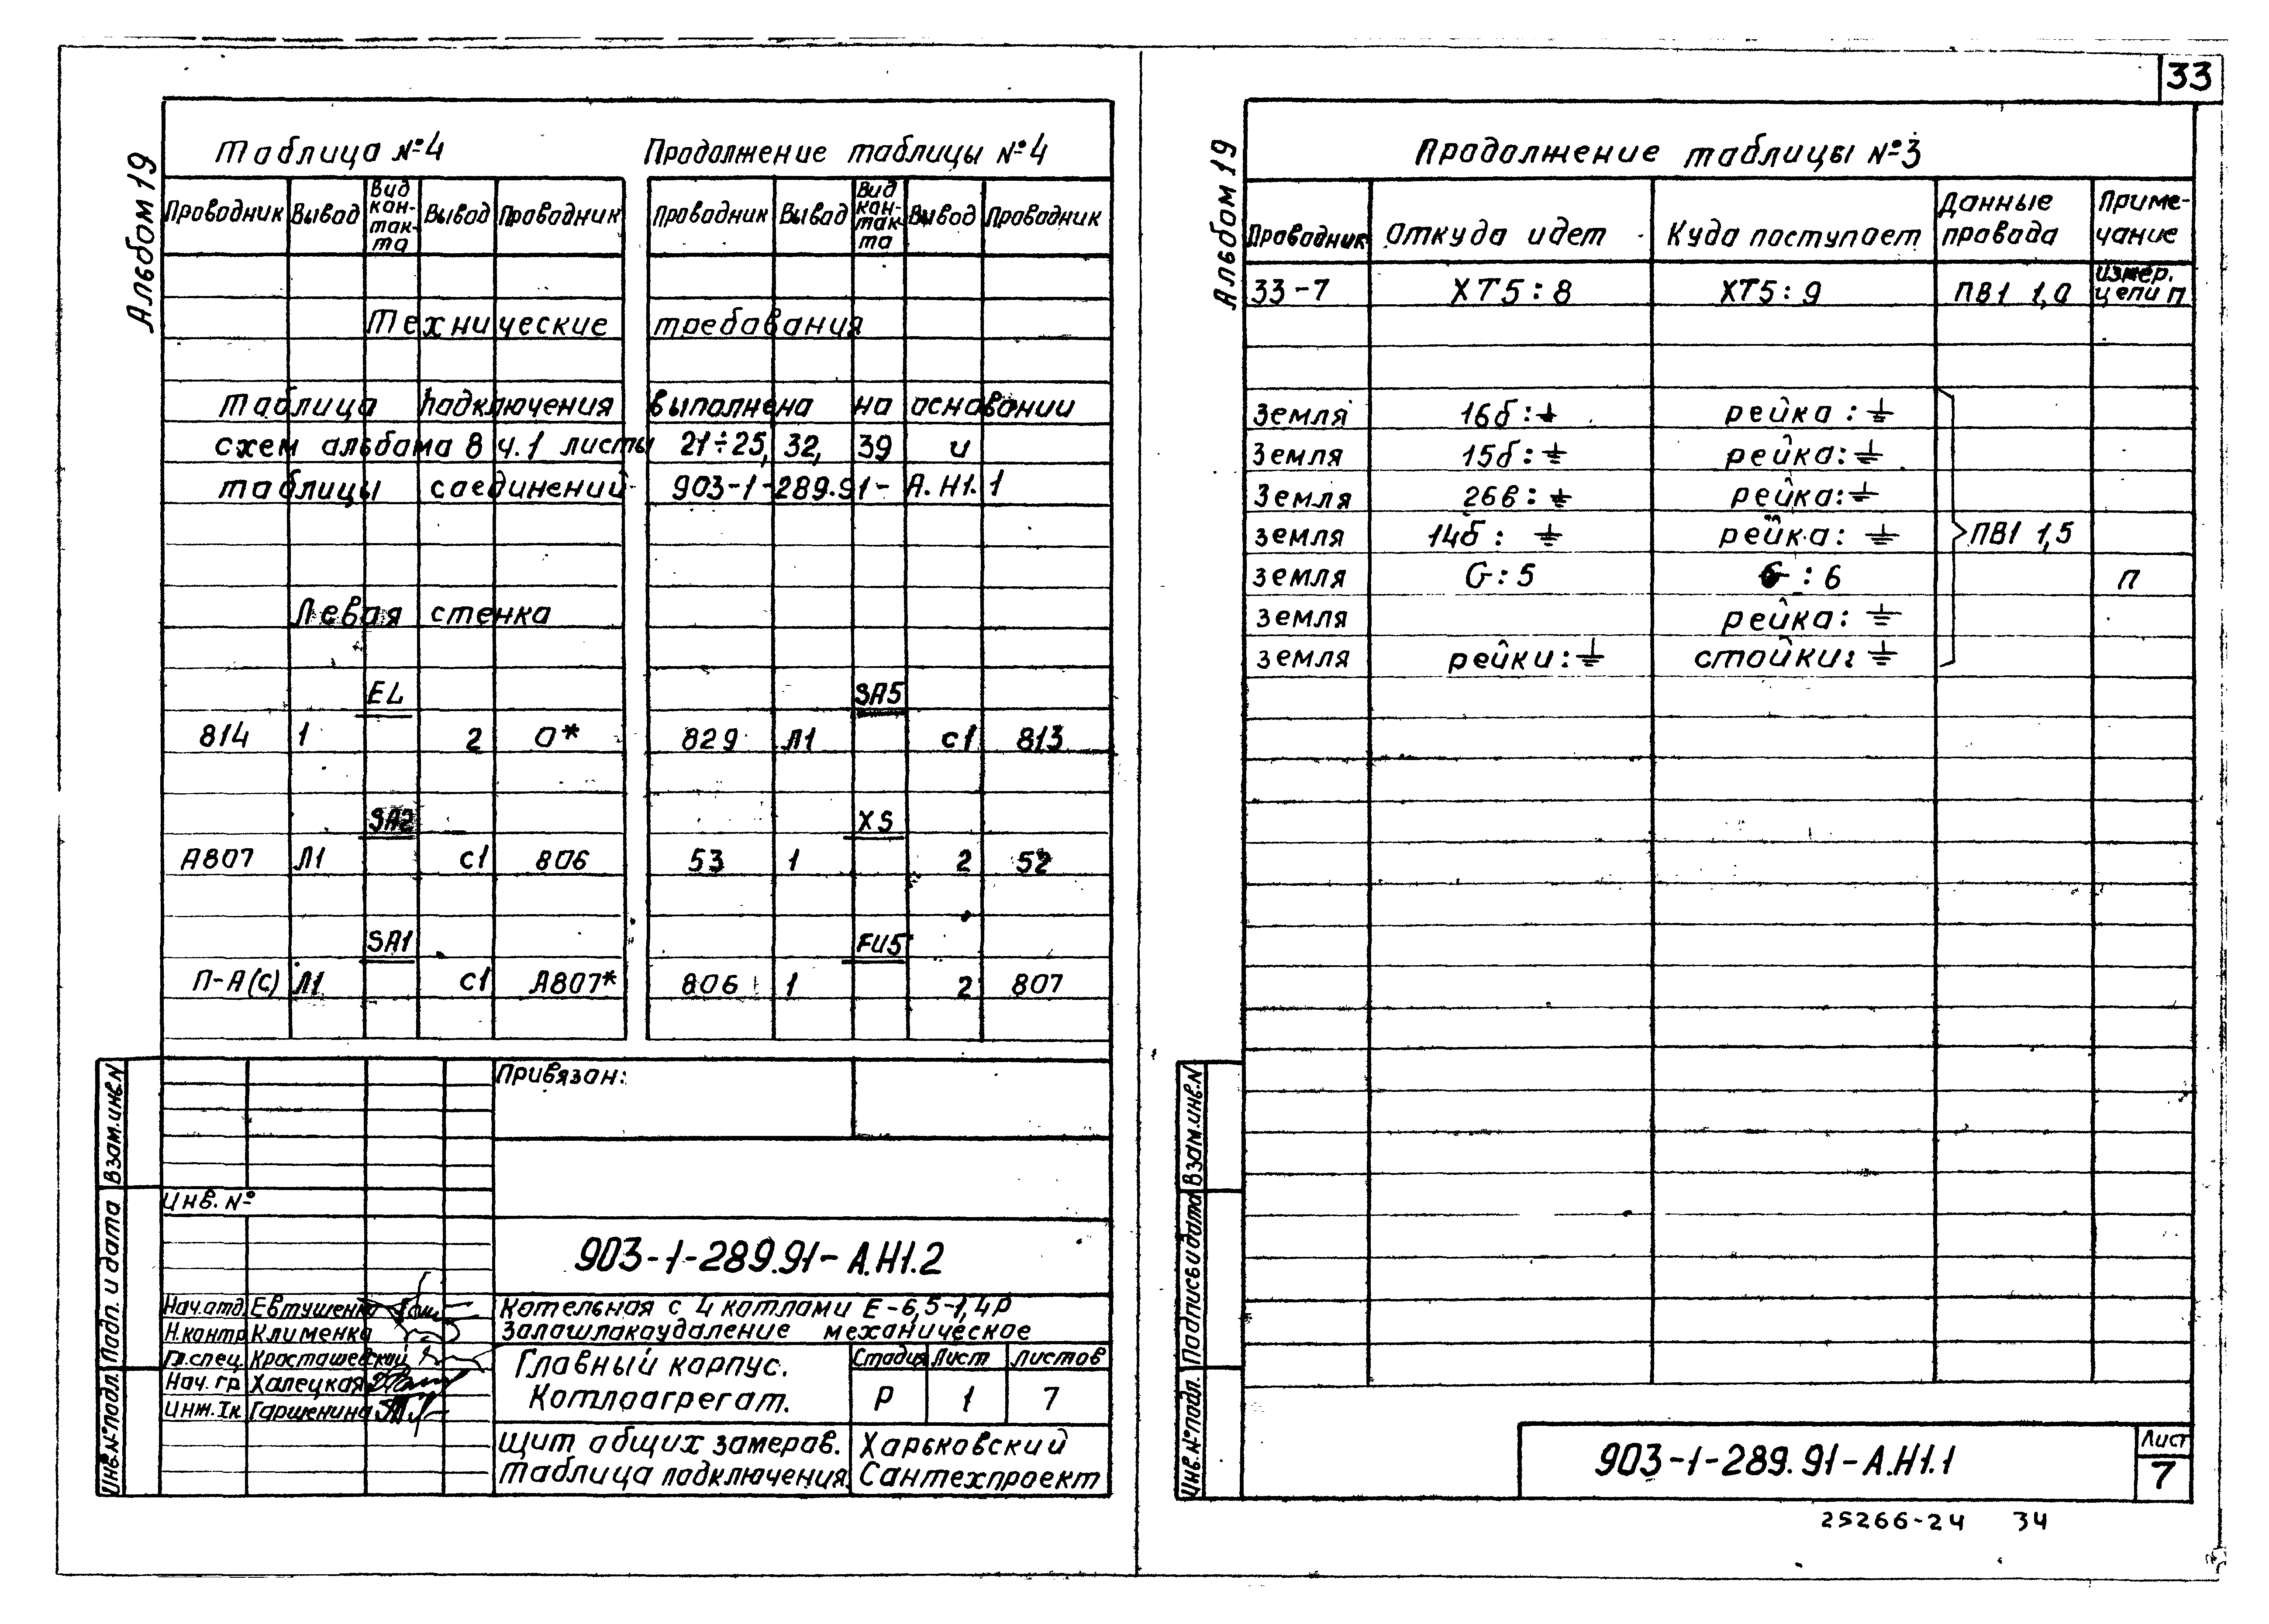 33
Альбом 19
Таблица №4
Продолжение таблицы №4
Проводник Вывод Вид кон-так-та Вывод Проводник
Проводник Вывод Вид кон-так-та Вывод Проводник
Технические требования
Таблица подключения выполнена на основании
схем альбома 8 ч.1 листы 21÷25, 32, 39 и
таблицы соединений 903-1-289.91-А.Н1.1
Левая стенка
EL SA5
814 1 2 0* 829 Л1 С1 813
SA2 XS
А807 Л1 С1 806 53 1 2 52
SA1 FU5
П-А(С) Л1 С1 А807* 806 1 2 807
Привязан:
Инв. №
903-1-289.91-А.Н1.2
Нач.отд. Евтушенко
Н.контр. Клименко
Гл.спец. Красташевский
Нач. гр. Халецкая
Инж. Iк Гаршенина
Котельная с 4 котлами Е-6,5-1,4Р
Золошлакоудаление механическое
Главный корпус.
Котлоагрегат.
Стадия Лист Листов
Р 1 7
Щит общих замеров.
Таблица подключения.
Харьковский
Сантехпроект
Инв.№подл. Подп. и дата Взам.инв.N
Альбом 19
Продолжение таблицы №3
Проводник Откуда идет Куда поступает Данные провода Приме-чание
33-7 ХТ5:8 ХТ5:9 ПВ1 1,0 Измер. цепи п
Земля 16б:⏚ рейка:⏚
Земля 15б:⏚ рейка:⏚
Земля 26в:⏚ рейка:⏚
Земля 14б:⏚ рейка:⏚ ПВ1 1,5
Земля G:5 G:6 п
Земля рейка:⏚
Земля рейки:⏚ стойки:⏚
Инв.№подл. Подпись и дата Взам.инв.N
903-1-289.91-А.Н1.1
Лист
7
25266-24 34